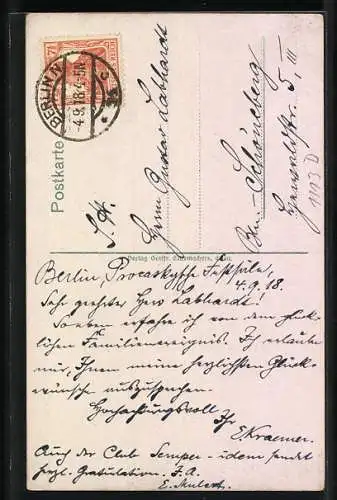 Postkarte
BERLIN N
4.9.18. 4-5N
S. H.
Herrn Gustav Labhardt
Bln.-Schöneberg
str. 5, III
1193 D
Verlag Gebr.
Berlin, 4.9.18.
Sehr geehrter Herr Labhardt!
Soeben erfahre ich von dem glück-
lichen Familienereignis. Ich erlaube
mir, Ihnen meine herzlichsten Glück-
wünsche auszusprechen.
Hochachtungsvoll
Ihr
E Kraemer.
Auch der Club Semper-idem sendet
herzl. Gratulation. I. A.
E.